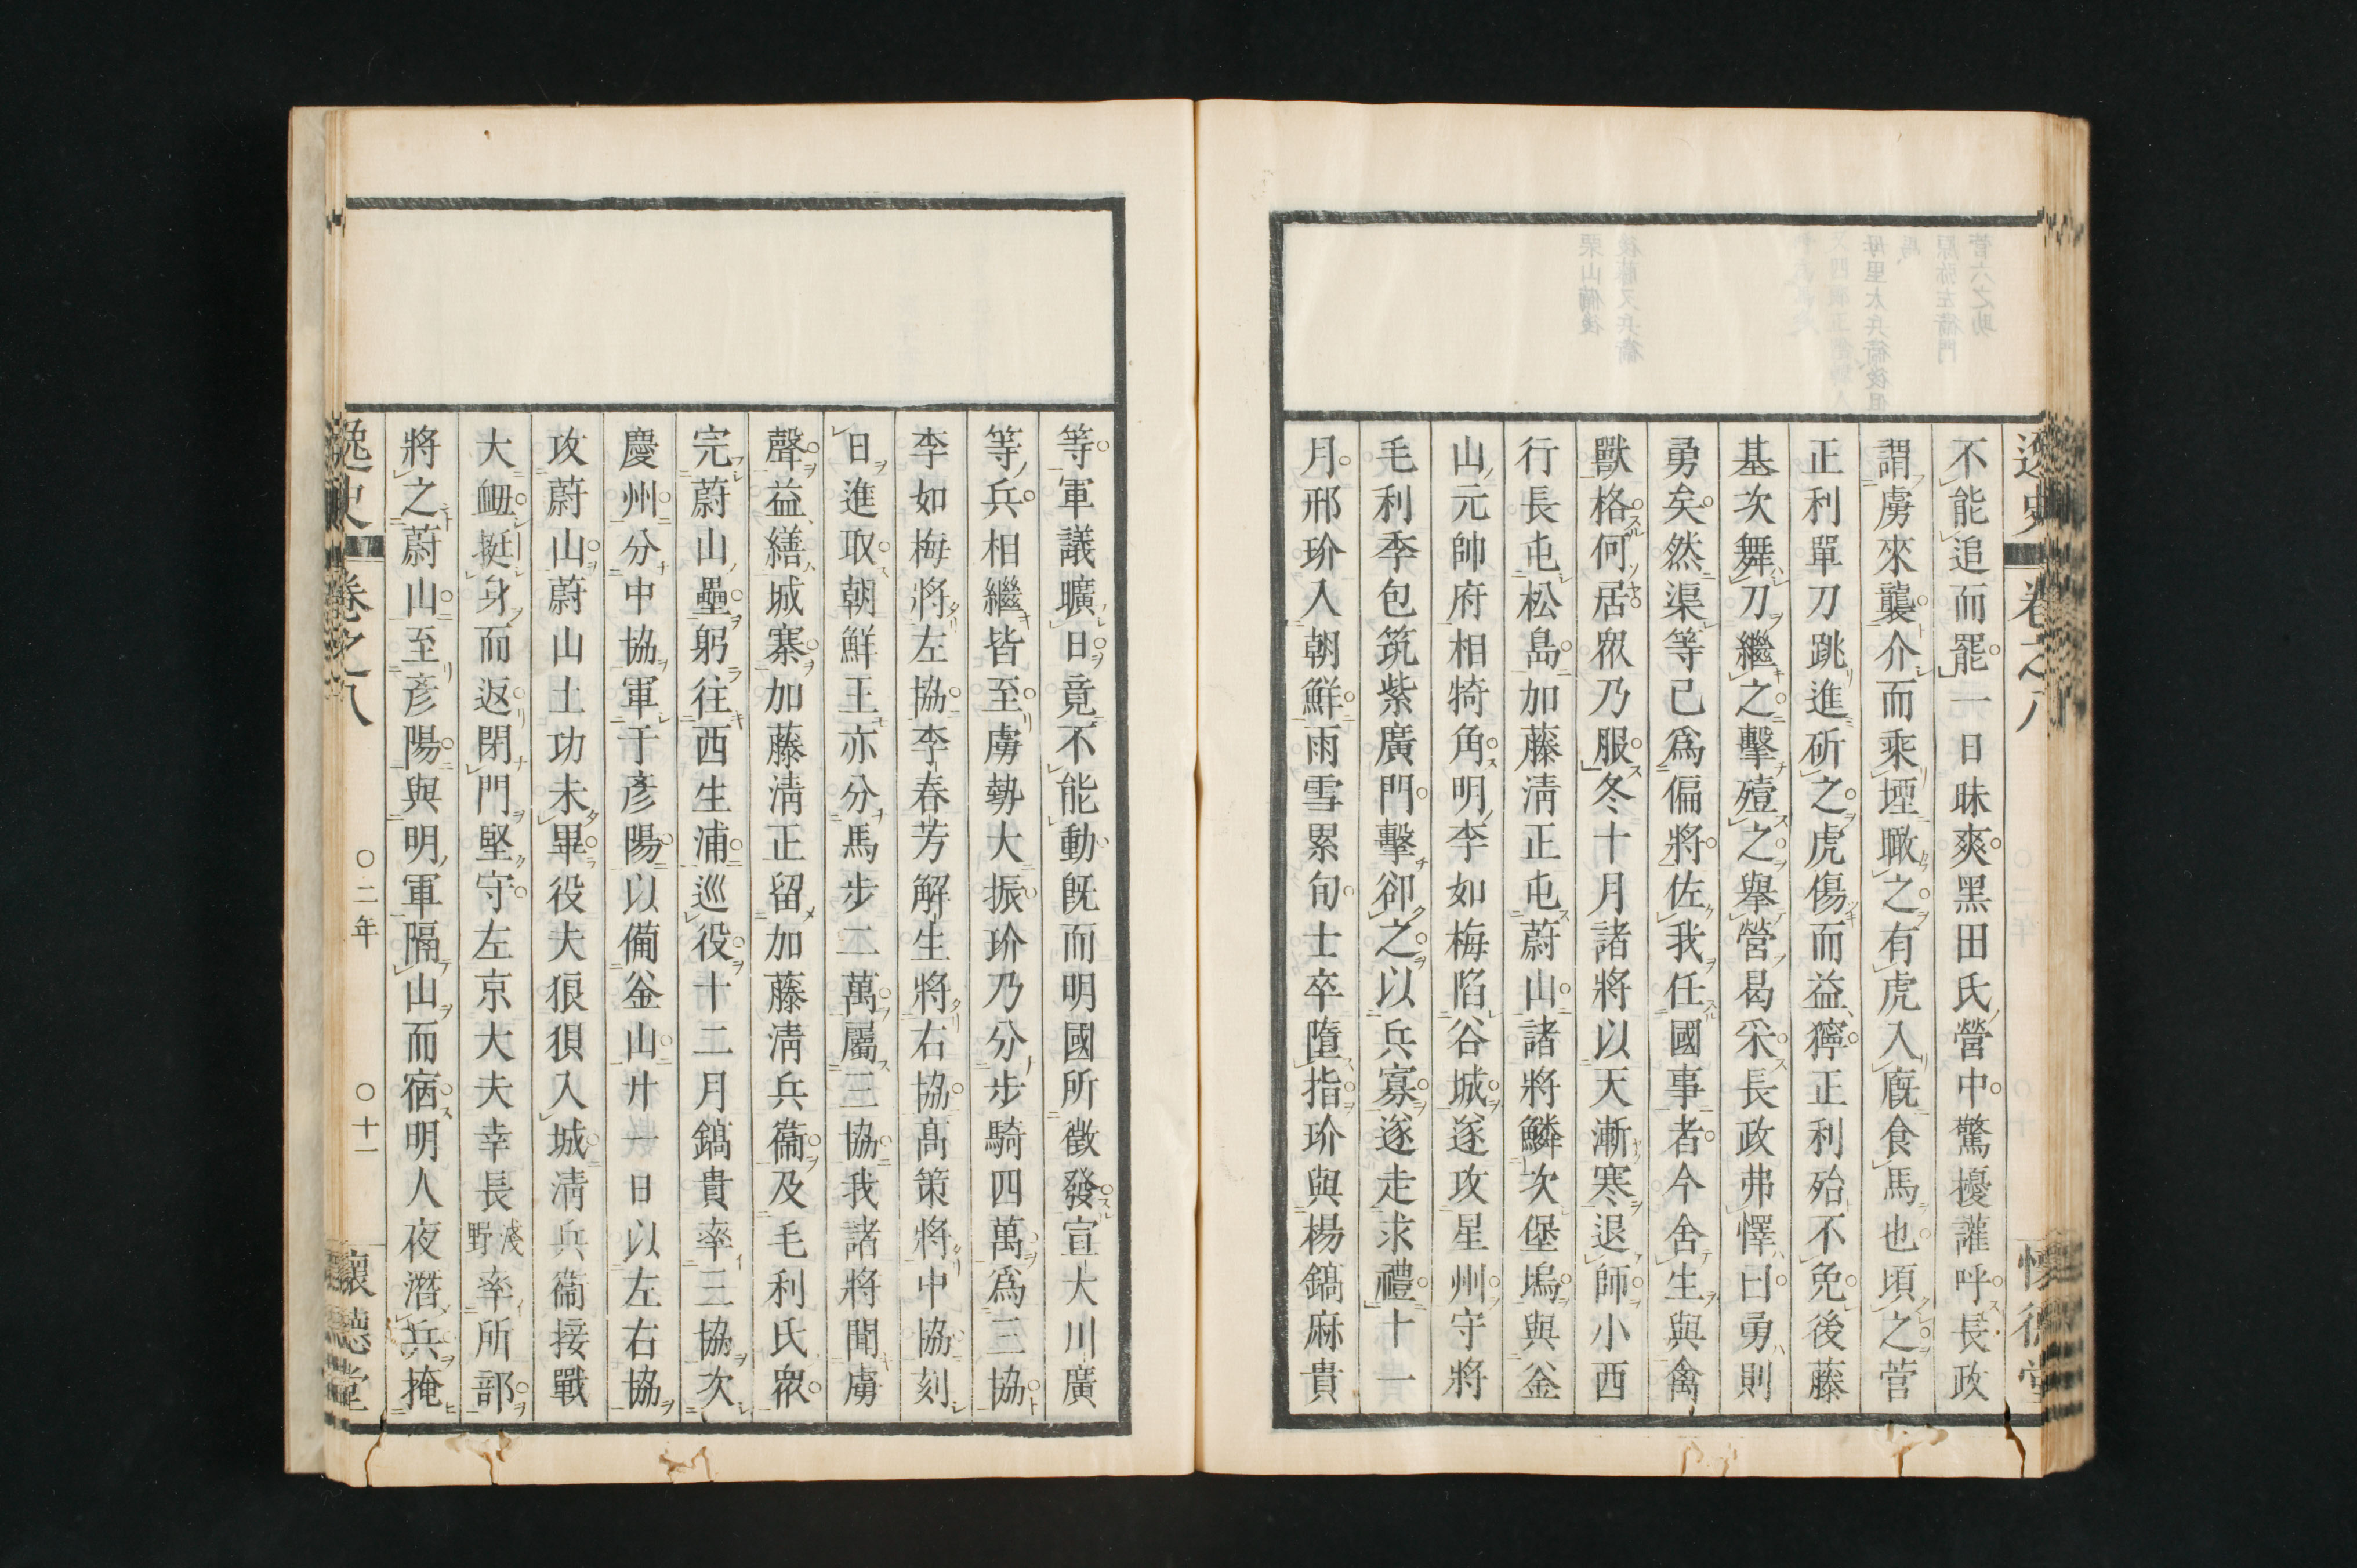 逸史 卷之八 懷德堂
不能追而罷一日昧爽黑田氏營中驚擾讙呼長政
謂虜來襲介而乘堙瞰之有虎入廐食馬也頃之菅
正利單刀跳進斫之虎傷而益獰正利殆不免後藤
基次舞刀繼之擊殪之擧營曷采長政弗懌曰勇則
勇矣然渠等已爲偏將佐我任國事者今舍生與禽
獸格何居眾乃服冬十月諸將以天漸寒退師小西
行長屯松島加藤淸正屯蔚山諸將鱗次堡塢與釜
山元帥府相犄角明李如梅陷谷城遂攻星州守將
毛利季包筑紫廣門擊卻之以兵寡逐走求禮十一
月邢玠入朝鮮雨雪累旬士卒墮指玠與楊鎬麻貴
等軍議曠日竟不能動旣而明國所徵發宣大川廣
等兵相繼皆至虜勢大振玠乃分步騎四萬爲三協
李如梅將左協李春芳解生將右協高策將中協刻
日進取朝鮮王亦分馬步二萬屬三協我諸將聞虜
聲益繕城寨加藤淸正留加藤淸兵衞及毛利氏眾
完蔚山壘躬往西生浦巡役十二月鎬貴率三協次
慶州分中協軍于彥陽以備釜山廾一日以左右協
攻蔚山蔚山土功未畢役夫狼狽入城淸兵衞接戰
大衄挺身而返閉門堅守左京大夫幸長淺野率所部
將之蔚山至彥陽與明軍隔山而宿明人夜潛兵掩
逸史 卷之八 〇二年 〇十一 懷德堂